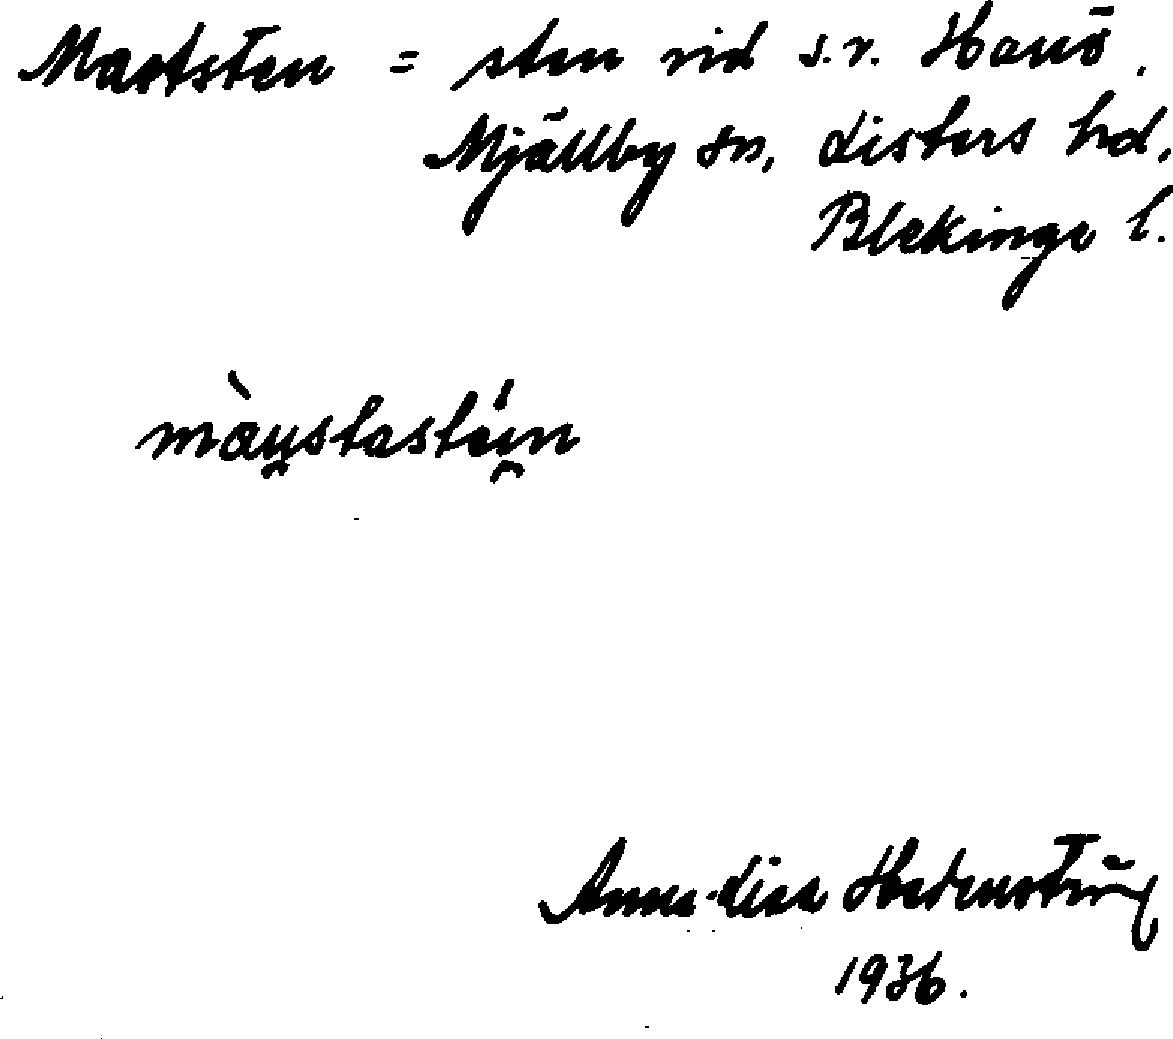 Maststen = sten vid s.v. Hanö,
Mjällby sn, Listers hd,
Blekinge l.
màu̯stastéi̯n
Anna-Lisa
1936.